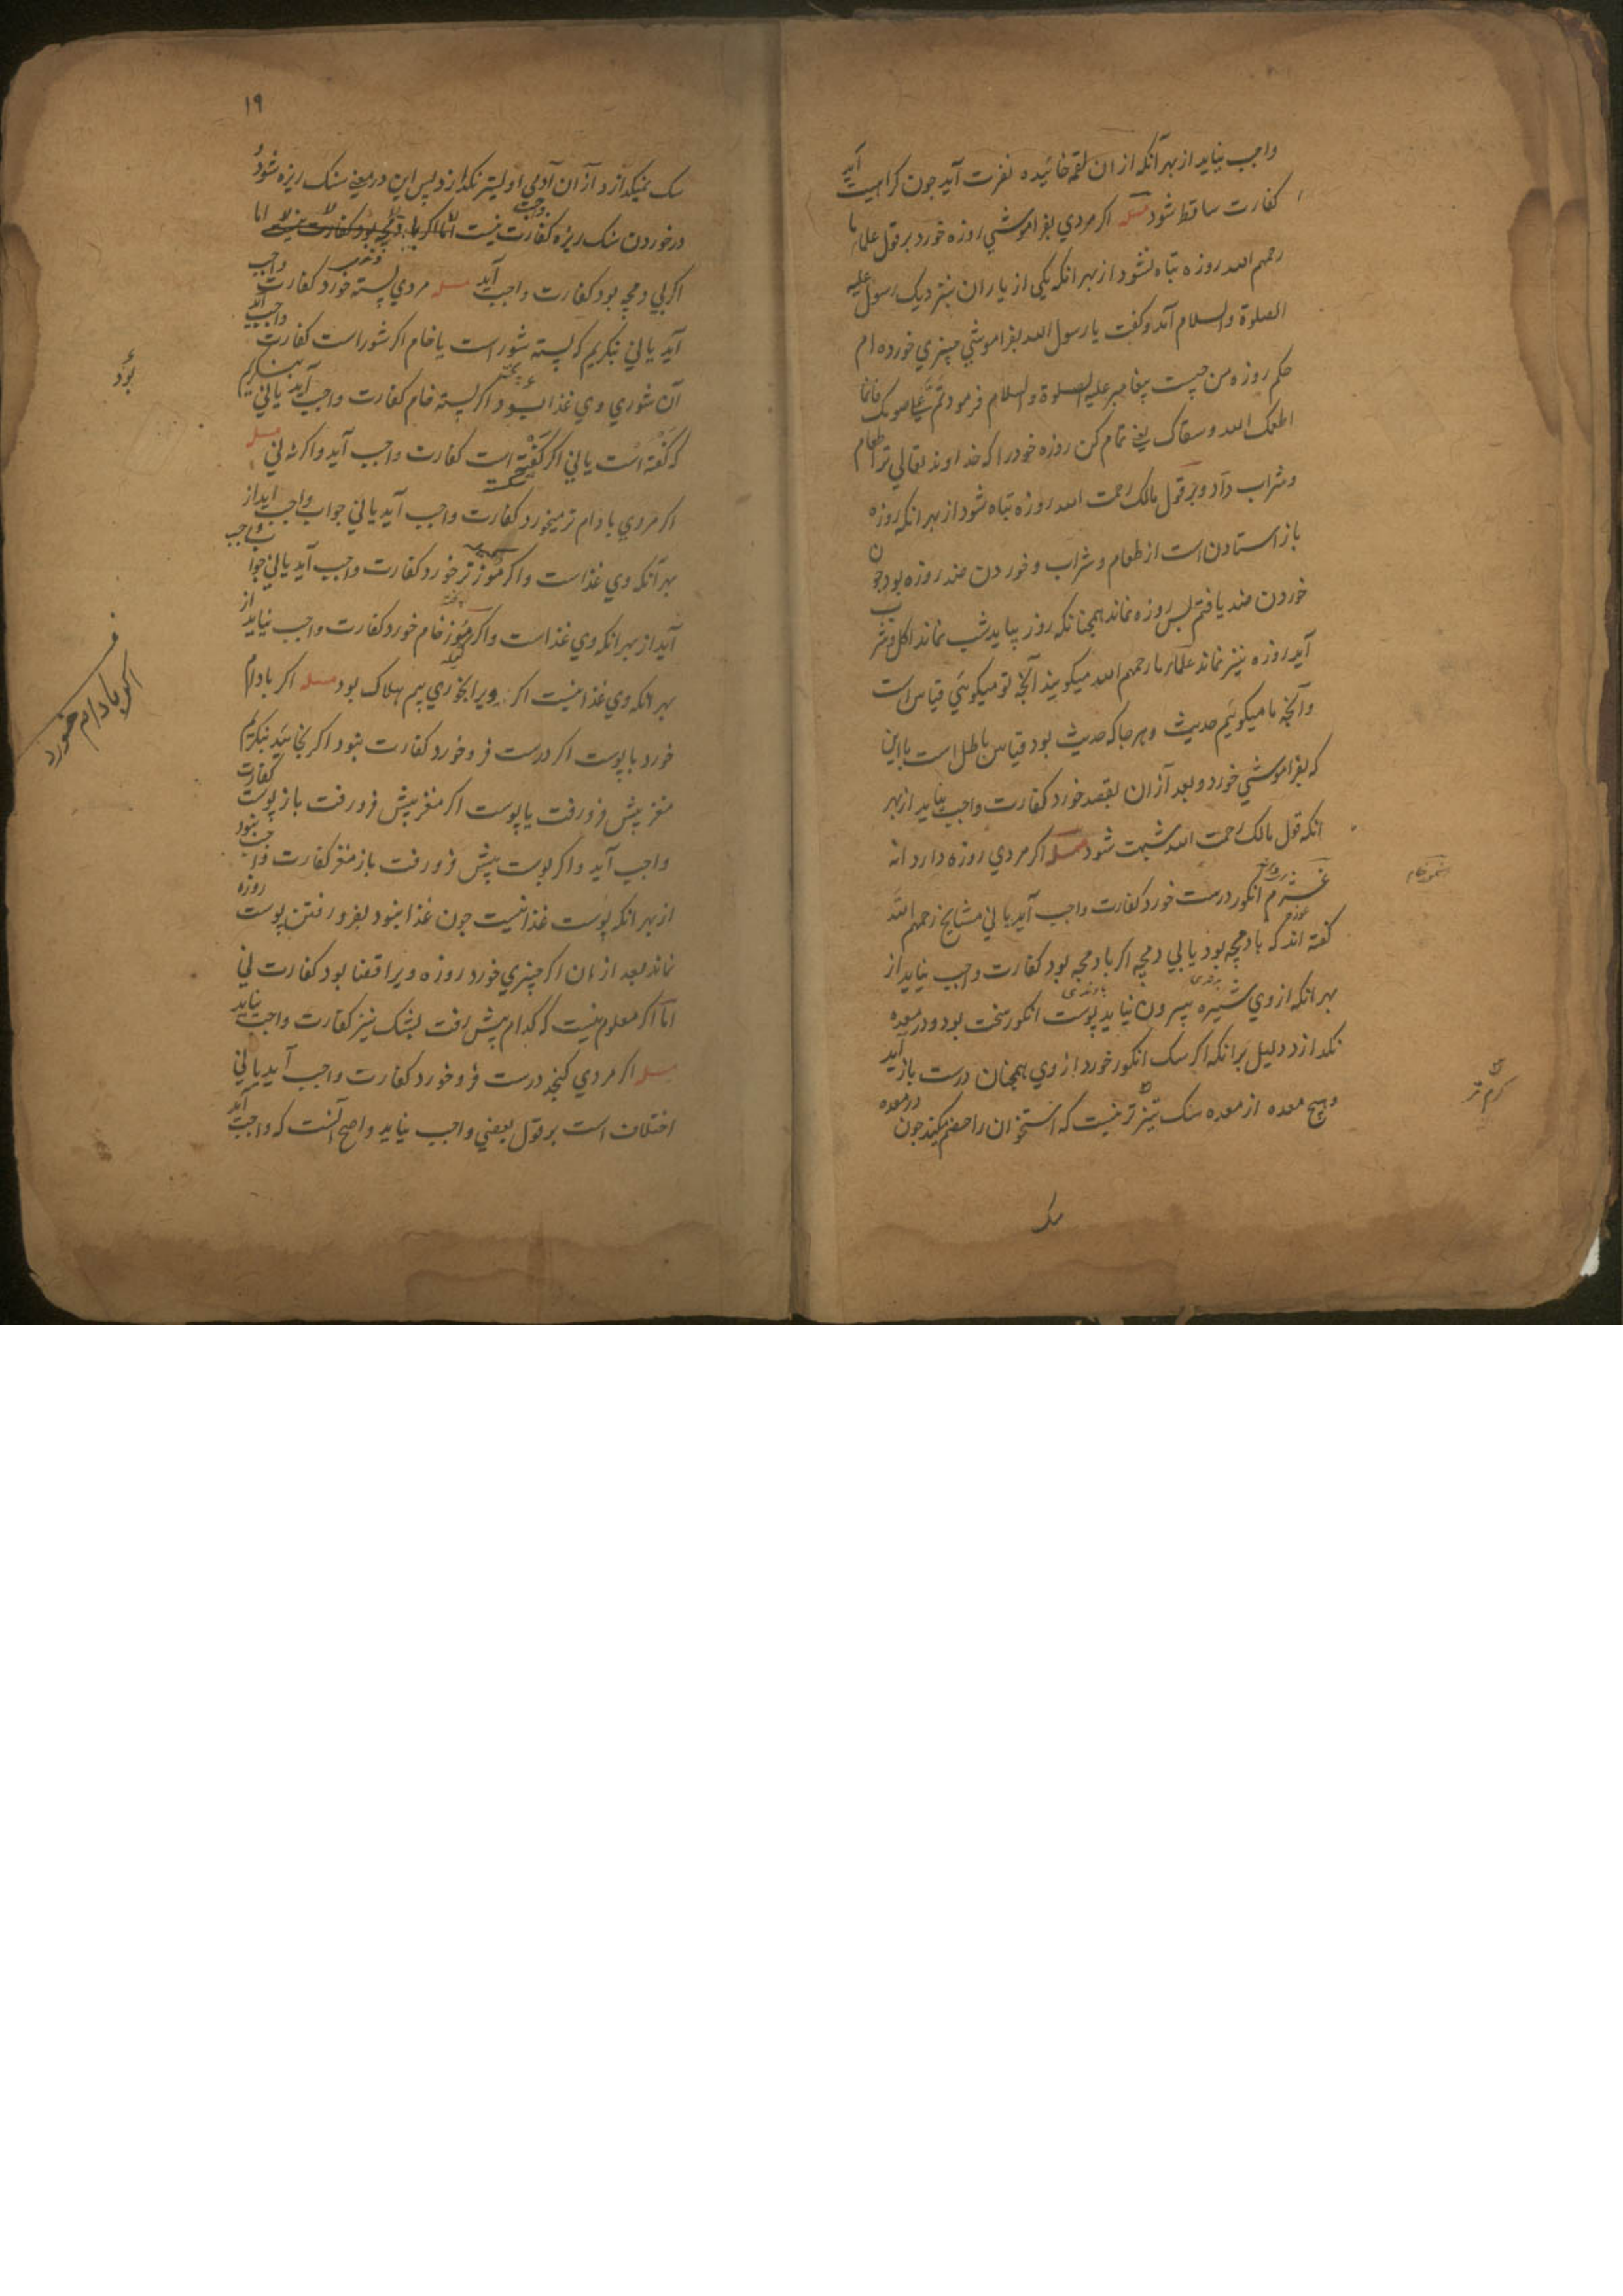 واجب نیاید از بهر آنکه از ان لقمه خائیده نفرت آید جون کراهیت آید
کفارت ساقط شود مسله اکر مردي بفراموشي روزه خورد بر قول علماء ما
رحمهم الله روزه تباه نشود از بهر انکه یکی از یاران بنزدیک رسول علیه
الصلوة والسلام آمد و کفت یا رسول الله بفراموشي چیزي خورده ام
حکم روزه من چیست پیغامبر علیه الصلوة والسلام فرمود تم علی صومک فانما
اطعمک الله وسقاک یعنی تمام کن روزه خود را که خداوند تعالي ترا طعام
وشراب داد و بر قول مالک رحمت الله روزه تباه شود از بهر انکه روزه
باز استادن است از طعام و شراب و خوردن ضد روزه بود جون
خوردن ضد یافتم پس روزه نماند همچنانکه روز بیاید شب نماند اکل و شرب
آید روزه نیز نماند علماء ما رحمهم الله میکویند آنچه تو میکویئي قیاس است
و آنچه ما میکوئیم حدیث و هر جا که حدیث بود قیاس باطل است با این
که بفراموشي خورد و بعد از ان بقصد خورد کفارت واجب نیاید از بهر
انکه قول مالک رحمت الله شبهت شود مسله اکر مردي روزه دارد انه
انکور درست خورد کفارت واجب آید یا ني مشایخ رحمهم الله
کفته اند که با دمچه بود یا بي دمچه اکر با دمچه بود کفارت واجب نیاید از
بهر انکه از وي شیره بیرون نیاید پوست انکور سخت بود و در معده
نکدازد دلیل بر انکه اکر سک انکور خورد از وي همچنان درست باز آید
و هیچ معده از معده سک تیز تر نیست که استخوان را هضم میکند جون در معده
سک
۱۹
سک نمیکدازد از ان آدمي اولیتر نکدازد پس این در معنی سنک ریزه شود و
در خوردن سنک ریزه کفارت واجب نیست اما اکر با دمچه بود کفارت نیست اما
اکر بي دمچه بود کفارت واجب آید مسله مردي پسته خورد کفارت واجب
آید یا ني بنکریم که پسته شور است یا خام اکر شور است کفارت واجب آید
آن شوري وي غذا بود اکر پسته خام کفارت واجب آید یا ني بنکریم
که کفته است یا ني اکر کفته است کفارت واجب آید و اکر نه ني مسله
اکر مردي بادام تر میخورد کفارت واجب آید یا ني جواب واجب آید از
بهر آنکه وي غذاست و اکر موز تر خورد کفارت واجب آید یا ني جواب واجب
آید از بهر انکه وي غذاست و اکر موز خام خورد کفارت واجب نیاید از
بهر انکه وي غذا نیست اکر ویرا بخوري بیم هلاک بود مسله اکر بادام
خورد با پوست اکر درست فرو خورد کفارت نبود اکر بخائید بنکریم
مغز پیش فرو رفت یا پوست اکر مغز پیش فرو رفت باز پوست کفارت
واجب آید و اکر پوست پیش فرو رفت باز مغز کفارت واجب نبود
از بهر انکه پوست غذا نیست جون غذا نبود بفرو رفتن پوست روزه
نماند بعد از ان اکر چیزي خورد روزه ویرا قضا بود کفارت ني
اما اکر معلوم نیست که کدام پیش رفت بشک نیز کفارت واجب نیاید
مسله اکر مردي کنجد درست فرو خورد کفارت واجب آید یا ني
اختلاف است بر قول بعضي واجب نیاید و اصح آنست که واجب آید
بود
اکر بادام خورد